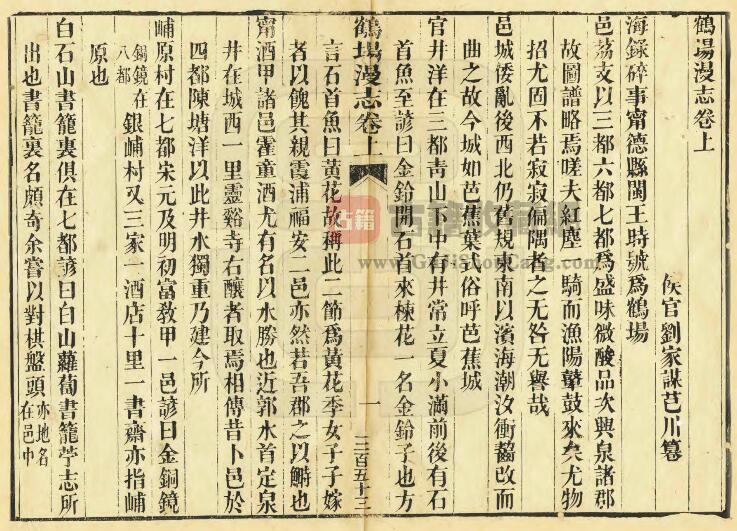 鶴場漫志卷上
侯官劉家謀芑川纂
海錄碎事甯德縣閩王時號爲鶴場
邑荔支以三都六都七都爲盛味微酸品次興泉諸郡
故圖譜略焉嗟夫紅塵一騎而漁陽鼙鼓來矣尤物
招尤固不若寂寂偏隅者之无咎无譽哉
邑城倭亂後西北仍舊規東南以濱海潮汐衝齧改而
曲之故今城如芭蕉葉式俗呼芭蕉城
官井洋在三都青山下中有井常立夏小滿前後有石
首魚至諺曰金鈴開石首來楝花一名金鈴子也方
言石首魚曰黃花故稱此二節爲黃花季女子子嫁
者以餽其親霞浦福安二邑亦然若吾郡之以鰣也
甯酒甲諸邑霍童酒尤有名以水勝也近郭水首定泉
井在城西一里靈谿寺右釀者取焉相傳昔卜邑於
四都陳塘洋以此井水獨重乃建今所
峬原村在七都宋元及明初富敎甲一邑諺曰金銅鏡
銅鏡在八都
銀峬村又三家一酒店十里一書齋亦指峬
原也
白石山書籠裏俱在七都諺曰白山蘿蔔書籠苧志所
出也書籠裏名頗奇余嘗以對棋盤頭
亦地名在邑中
鶴場漫志卷上
一
三百五十三
古籍
www.GujiShouCang.com